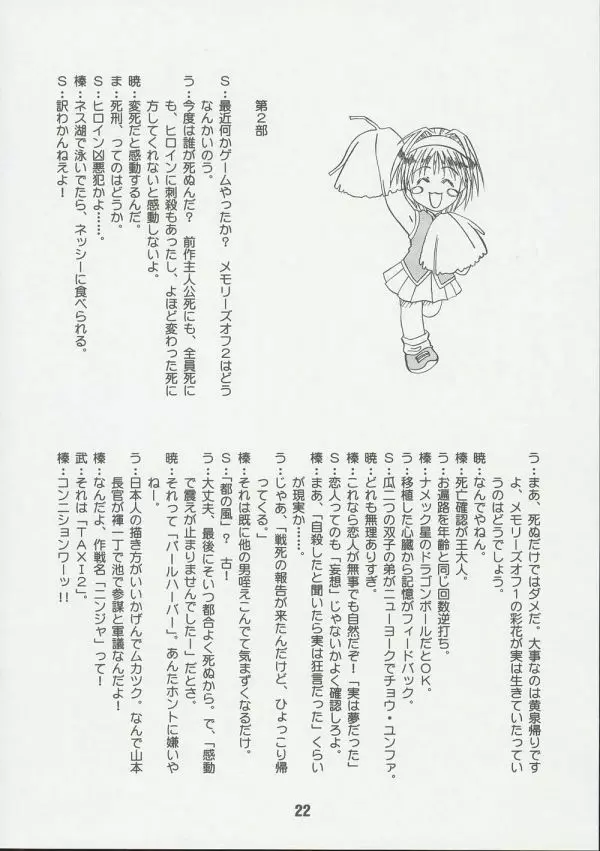 第２部
Ｓ：最近何かゲームやったか？　メモリーズオフ２はどう
なんかいのう。
う：今度は誰が死ぬんだ？　前作主人公死にも、全員死に
も、ヒロインに刺殺もあったし、よほど変わった死に
方してくれないと感動しないよ。
暁：変死だと感動するんだ。
ま：死刑、ってのはどうか。
Ｓ：ヒロイン凶悪犯かよ……。
榛：ネス湖で泳いでたら、ネッシーに食べられる。
Ｓ：訳わかんねえよ！
う：まあ、死ぬだけではダメだ。大事なのは黄泉帰りです
よ、メモリーズオフ１の彩花が実は生きていたってい
うのはどうでしょう。
暁：なんでやねん。
榛：死亡確認が王大人。
う：お遍路を年齢と同じ回数逆打ち。
榛：ナメック星のドラゴンボールだとＯＫ。
う：移植した心臓から記憶がフィードバック。
Ｓ：瓜二つの双子の弟がニューヨークでチョウ・ユンファ。
暁：どれも無理ありすぎ。
榛：これなら恋人が無事でも自然だぞ！「実は夢だった」
Ｓ：恋人ってのも「妄想」じゃないかよく確認しろよ。
榛：まあ、「自殺したと聞いたら実は狂言だった」くらい
が現実か……。
う：じゃあ、「戦死の報告が来たんだけど、ひょっこり帰
ってくる。」
榛：それは既に他の男咥えこんでて気まずくなるだけ。
Ｓ：「都の風」？　古！
う：大丈夫、最後にそいつ都合よく死ぬから。で、「感動
で震えが止まりませんでしたー」だとさ。
暁：それって「パールハーバー」。あんたホントに嫌いや
ねー。
う：日本人の描き方がいいかげんでムカツク。なんで山本
長官が褌一丁で池で参謀と軍議なんだよ！
榛：なんだよ、作戦名「ニンジャ」って！
武：それは「ＴＡＸＩ２」。
榛：コンニショワーッ！！
22